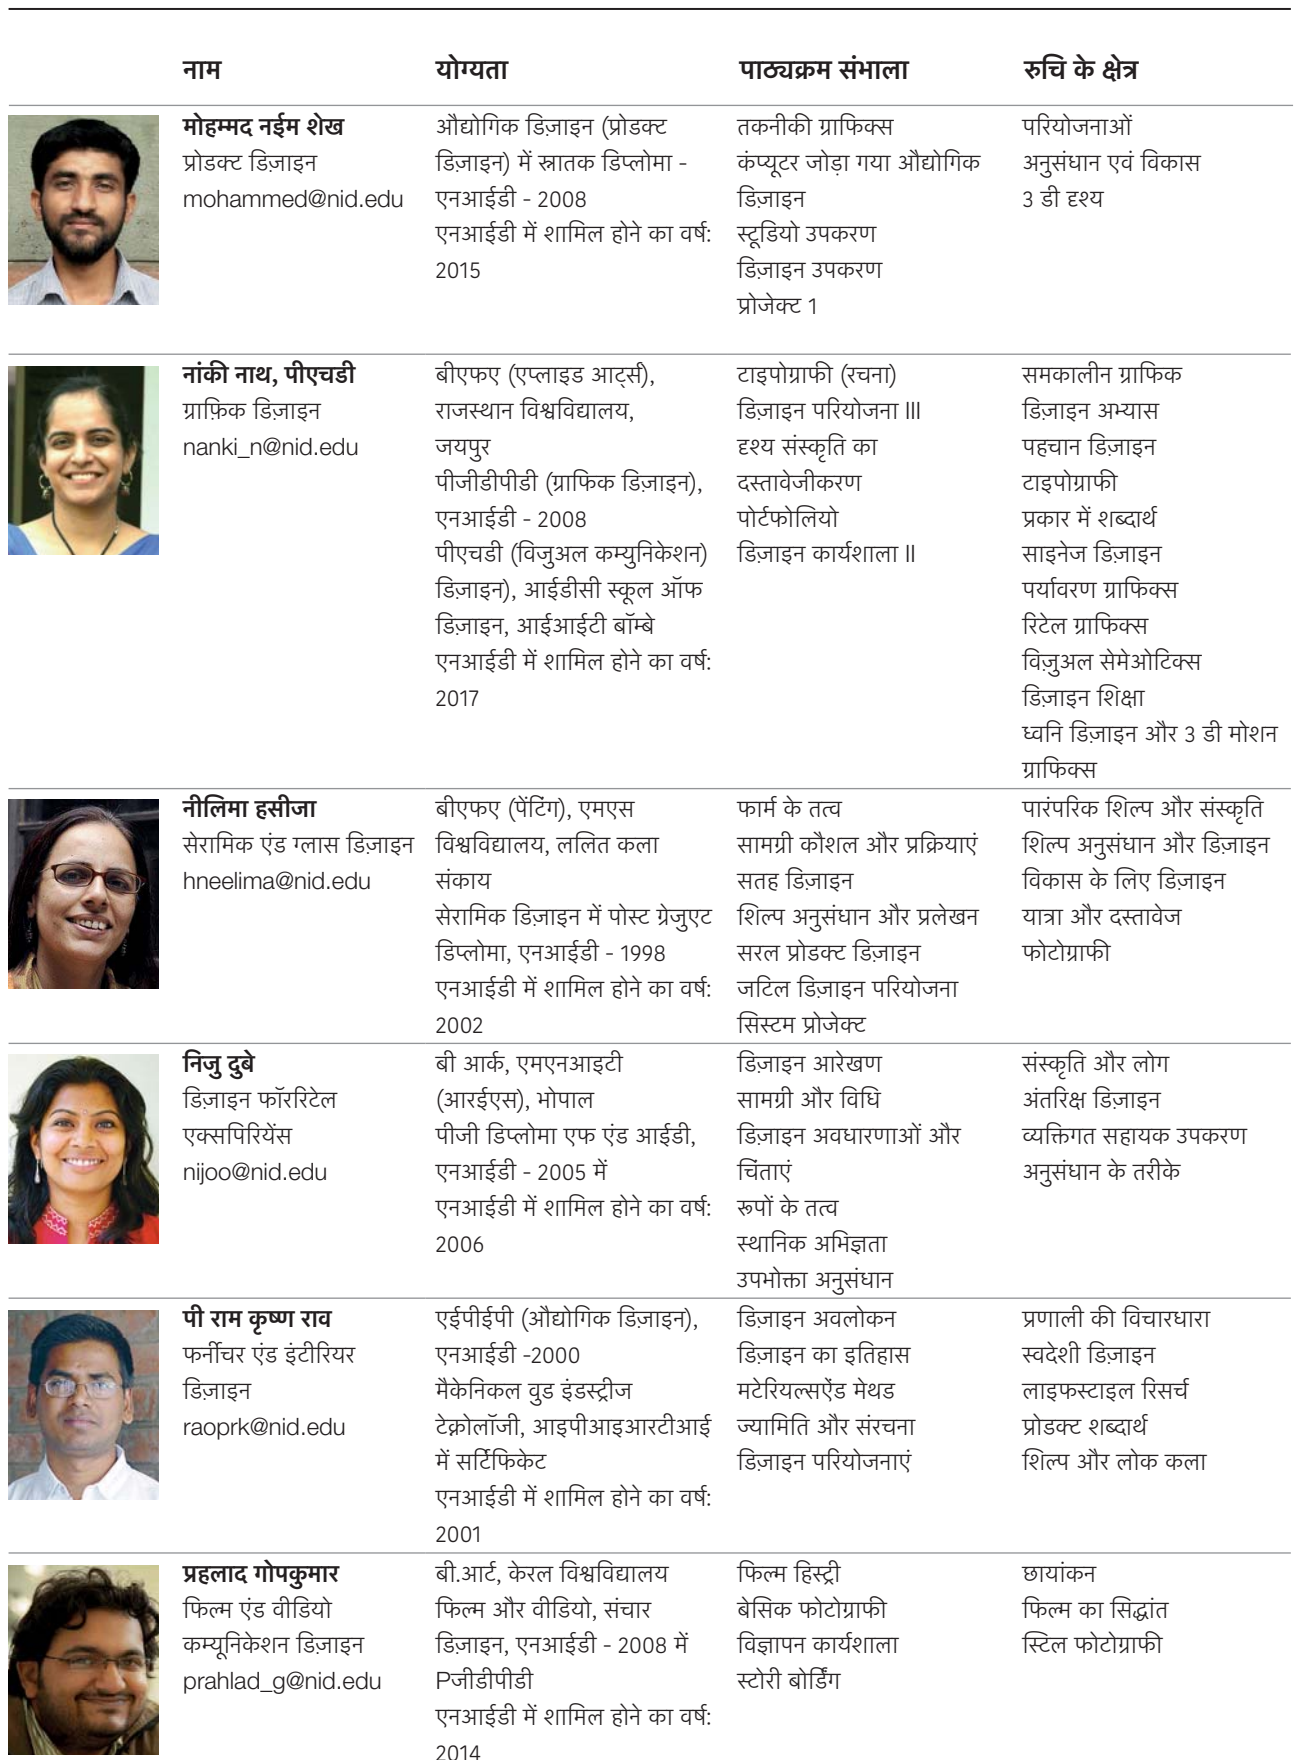 नाम
योग्यता
पाठ्यक्रम संभाला
रुचि के क्षेत्र
मोहम्मद नईम शेख
प्रोडक्ट डिज़ाइन
mohammed@nid.edu
औद्योगिक डिज़ाइन (प्रोडक्ट
डिज़ाइन) में स्नातक डिप्लोमा -
एनआईडी - 2008
एनआईडी में शामिल होने का वर्ष:
2015
तकनीकी ग्राफिक्स
कंप्यूटर जोड़ा गया औद्योगिक
डिज़ाइन
स्टूडियो उपकरण
डिज़ाइन उपकरण
प्रोजेक्ट 1
परियोजनाओं
अनुसंधान एवं विकास
3 डी दृश्य
नांकी नाथ, पीएचडी
ग्राफ़िक डिज़ाइन
nanki_n@nid.edu
बीएफए (एप्लाइड आर्ट्स),
राजस्थान विश्वविद्यालय,
जयपुर
पीजीडीपीडी (ग्राफिक डिज़ाइन),
एनआईडी - 2008
पीएचडी (विजुअल कम्युनिकेशन)
डिज़ाइन), आईडीसी स्कूल ऑफ
डिज़ाइन, आईआईटी बॉम्बे
एनआईडी में शामिल होने का वर्ष:
2017
टाइपोग्राफी (रचना)
डिज़ाइन परियोजना III
दृश्य संस्कृति का
दस्तावेजीकरण
पोर्टफोलियो
डिज़ाइन कार्यशाला II
समकालीन ग्राफिक
डिज़ाइन अभ्यास
पहचान डिज़ाइन
टाइपोग्राफी
प्रकार में शब्दार्थ
साइनेज डिज़ाइन
पर्यावरण ग्राफिक्स
रिटेल ग्राफिक्स
विज़ुअल सेमेओटिक्स
डिज़ाइन शिक्षा
ध्वनि डिज़ाइन और 3 डी मोशन
ग्राफिक्स
नीलिमा हसीजा
सेरामिक एंड ग्लास डिज़ाइन
hneelima@nid.edu
बीएफए (पेंटिंग), एमएस
विश्वविद्यालय, ललित कला
संकाय
सेरामिक डिज़ाइन में पोस्ट ग्रेजुएट
डिप्लोमा, एनआईडी - 1998
एनआईडी में शामिल होने का वर्ष:
2002
फार्म के तत्व
सामग्री कौशल और प्रक्रियाएं
सतह डिज़ाइन
शिल्प अनुसंधान और प्रलेखन
सरल प्रोडक्ट डिज़ाइन
जटिल डिज़ाइन परियोजना
सिस्टम प्रोजेक्ट
पारंपरिक शिल्प और संस्कृति
शिल्प अनुसंधान और डिज़ाइन
विकास के लिए डिज़ाइन
यात्रा और दस्तावेज
फोटोग्राफी
निजु दुबे
डिज़ाइन फॉररिटेल
एक्सपिरियेंस
nijoo@nid.edu
बी आर्क, एमएनआइटी
(आरईएस), भोपाल
पीजी डिप्लोमा एफ एंड आईडी,
एनआईडी - 2005 में
एनआईडी में शामिल होने का वर्ष:
2006
डिज़ाइन आरेखण
सामग्री और विधि
डिज़ाइन अवधारणाओं और
चिंताएं
रूपों के तत्व
स्थानिक अभिज्ञता
उपभोक्ता अनुसंधान
संस्कृति और लोग
अंतरिक्ष डिज़ाइन
व्यक्तिगत सहायक उपकरण
अनुसंधान के तरीके
पी राम कृष्ण राव
फर्नीचर एंड इंटीरियर
डिज़ाइन
raoprk@nid.edu
एईपीईपी (औद्योगिक डिज़ाइन),
एनआईडी -2000
मैकेनिकल वुड इंडस्ट्रीज
टेक्नोलॉजी, आइपीआइआरटीआई
में सर्टिफिकेट
एनआईडी में शामिल होने का वर्ष:
2001
डिज़ाइन अवलोकन
डिज़ाइन का इतिहास
मटेरियल्सऐंड मेथड
ज्यामिति और संरचना
डिज़ाइन परियोजनाएं
प्रणाली की विचारधारा
स्वदेशी डिज़ाइन
लाइफस्टाइल रिसर्च
प्रोडक्ट शब्दार्थ
शिल्प और लोक कला
प्रहलाद गोपकुमार
फिल्म एंड वीडियो
कम्यूनिकेशन डिज़ाइन
prahlad_g@nid.edu
बी.आर्ट, केरल विश्वविद्यालय
फिल्म और वीडियो, संचार
डिज़ाइन, एनआईडी - 2008 में
Pजीडीपीडी
एनआईडी में शामिल होने का वर्ष:
2014
फिल्म हिस्ट्री
बेसिक फोटोग्राफी
विज्ञापन कार्यशाला
स्टोरी बोर्डिंग
छायांकन
फिल्म का सिद्धांत
स्टिल फोटोग्राफी